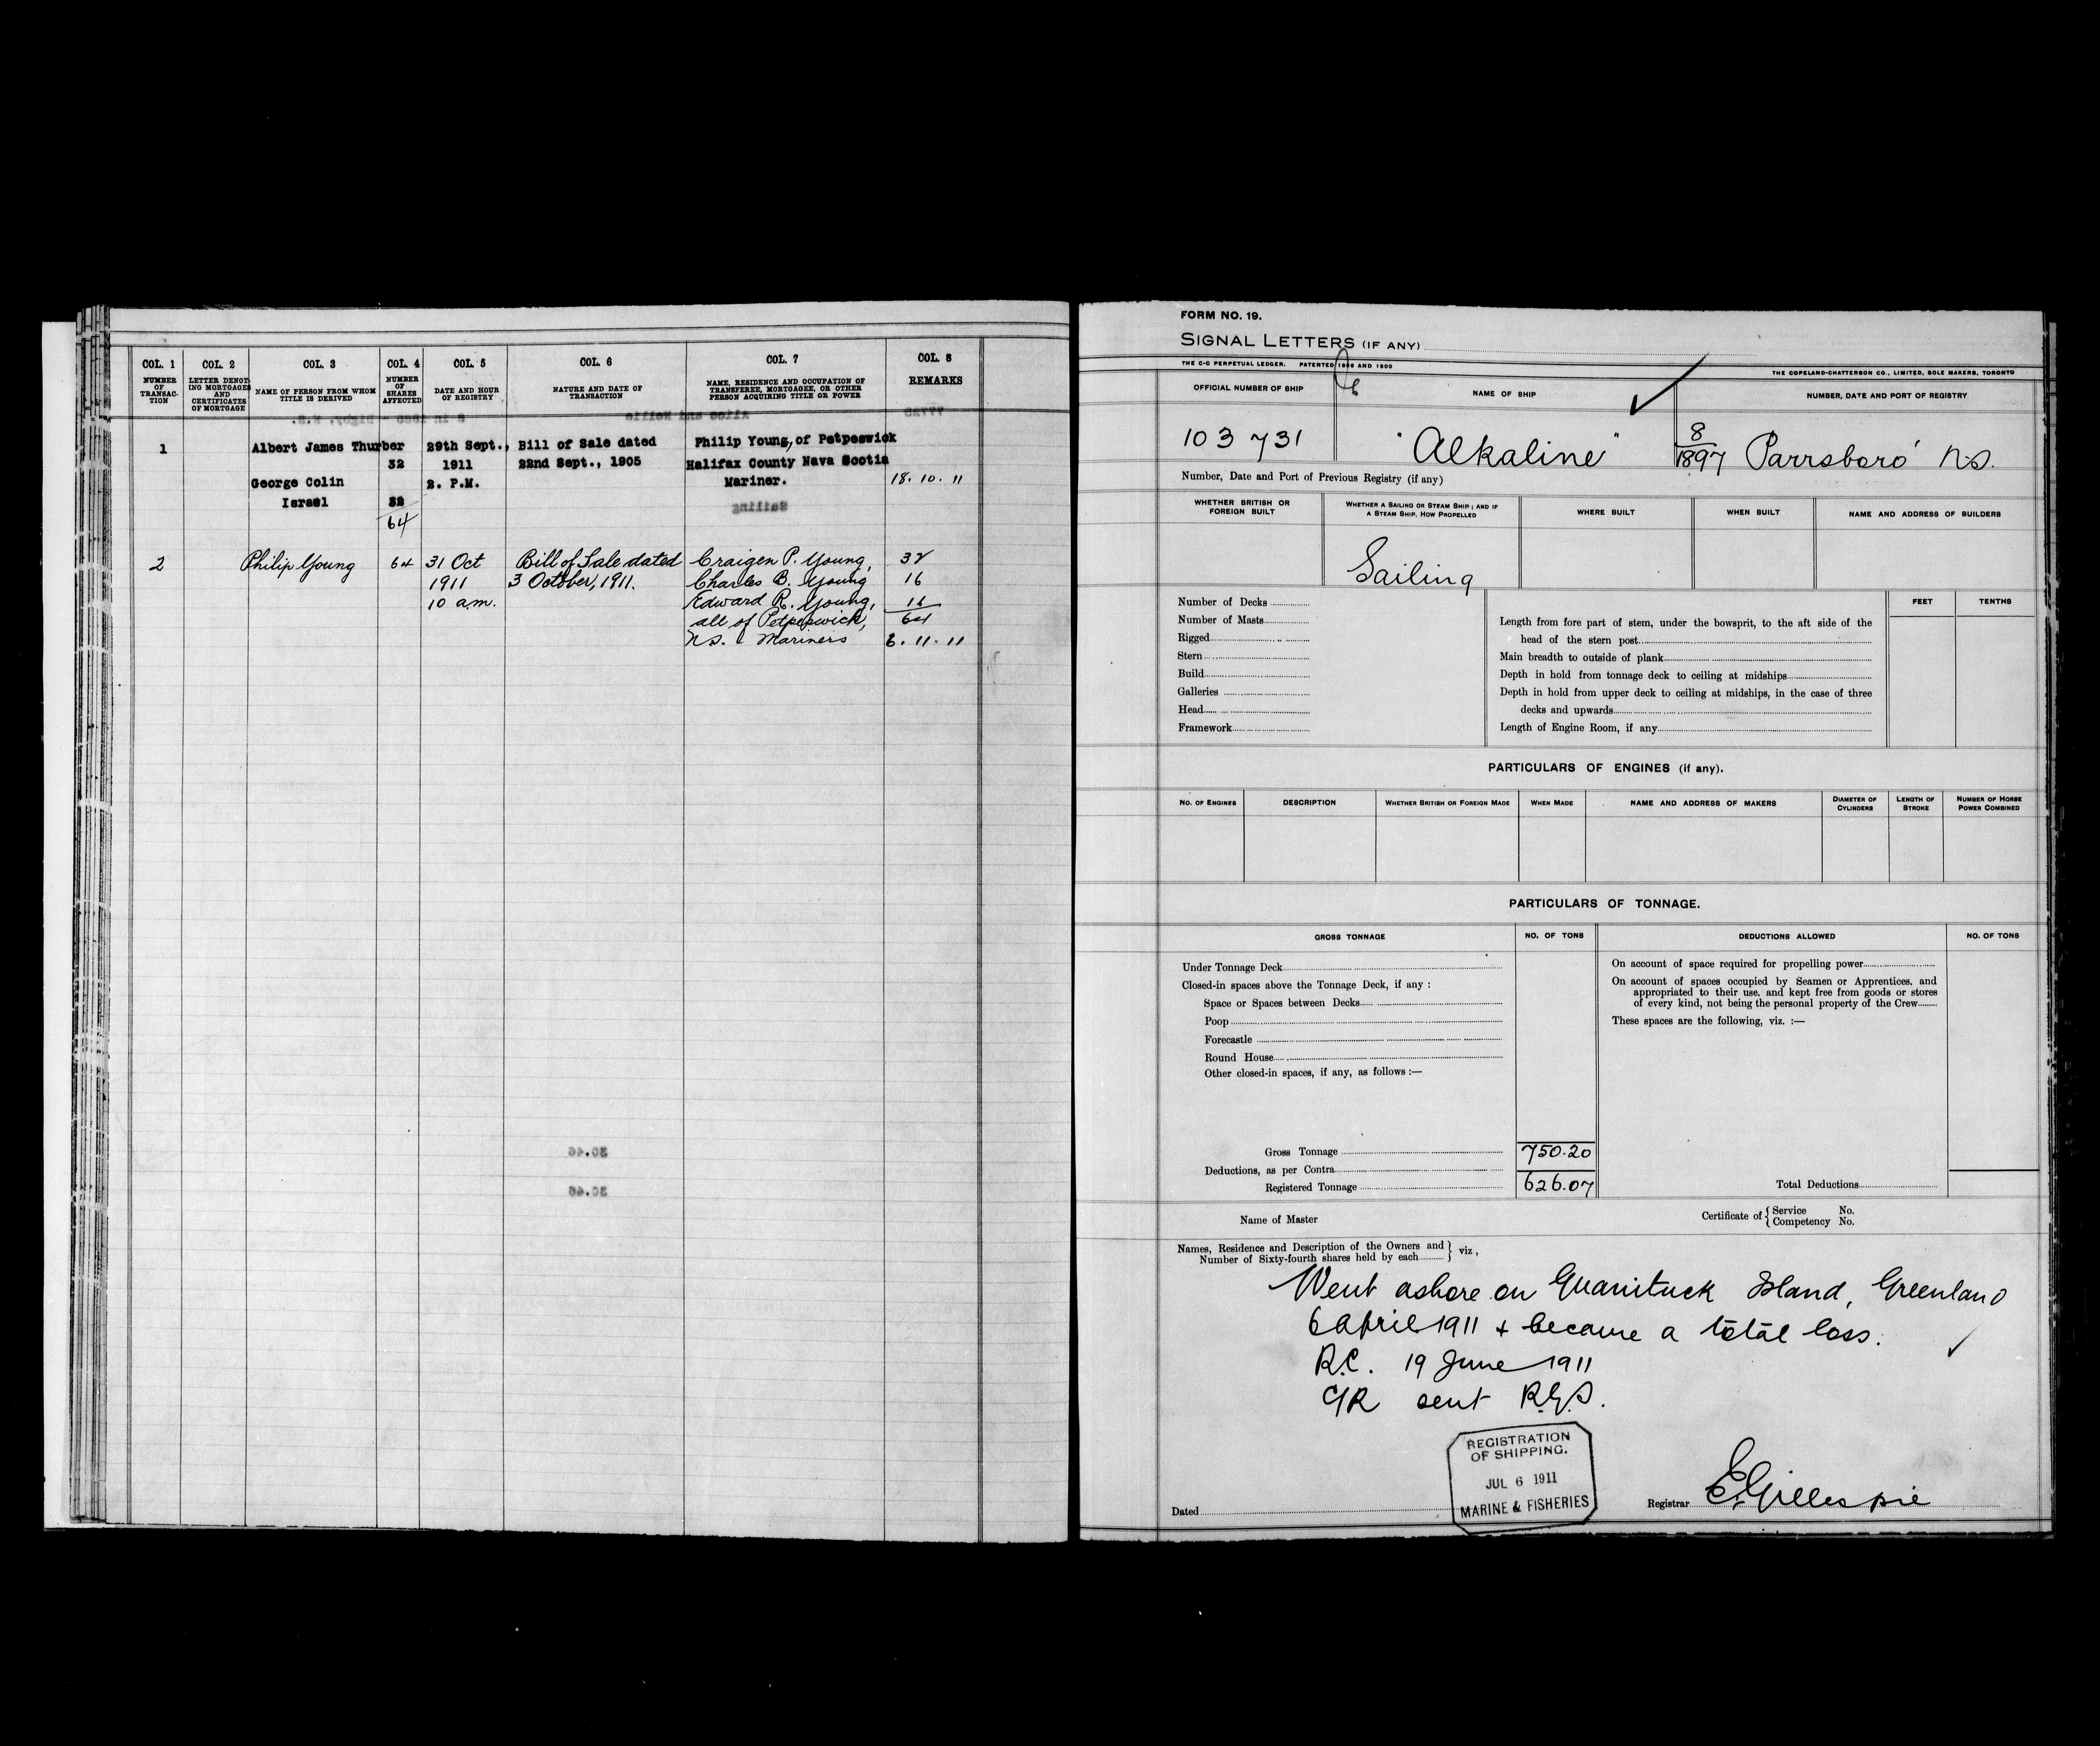 COL. 1 COL. 2 COL. 3 COL. 4 COL. 5 COL. 6 COL. 7 COL. 8
NUMBER OF TRANSAC-TION
LETTER DENOT-ING MORTGAGES AND CERTIFICATES OF MORTGAGE
NAME OF PERSON FROM WHOM TITLE IS DERIVED
NUMBER OF SHARES AFFECTED
DATE AND HOUR OF REGISTRY
NATURE AND DATE OF TRANSACTION
NAME, RESIDENCE AND OCCUPATION OF TRANSFEREE, MORTGAGEE, OR OTHER PERSON ACQUIRING TITLE OR POWER
REMARKS
1 Albert James Thurber 29th Sept., Bill of Sale dated Philip Young, of Petpeswick
32 1911 22nd Sept., 1905 Halifax County Nava Scotia
George Colin 2. P.M. Mariner. 18.10.11
Israel 32
64
2 Philip Young 64 31 Oct Bill of Sale dated Craigen P. Young, 32
1911 3 October, 1911. Charles B. Young 16
10 a.m. Edward R. Young, 16
all of Petpeswick, 64
N.S. Mariners 6.11.11
30.46
30.46
FORM NO. 19.
SIGNAL LETTERS (IF ANY)
THE C-C PERPETUAL LEDGER. PATENTED 1896 AND 1900
THE COPELAND-CHATTERSON CO., LIMITED, SOLE MAKERS, TORONTO
OFFICIAL NUMBER OF SHIP NAME OF SHIP NUMBER, DATE AND PORT OF REGISTRY
103731 "Alkaline" 8/1897 Parrsboro' N.S.
Number, Date and Port of Previous Registry (if any)
WHETHER BRITISH OR FOREIGN BUILT
WHETHER A SAILING OR STEAM SHIP; AND IF A STEAM SHIP, HOW PROPELLED
WHERE BUILT
WHEN BUILT
NAME AND ADDRESS OF BUILDERS
Sailing
Number of Decks
Number of Masts
Rigged
Stern
Build
Galleries
Head
Framework
FEET TENTHS
Length from fore part of stem, under the bowsprit, to the aft side of the
head of the stern post
Main breadth to outside of plank
Depth in hold from tonnage deck to ceiling at midships
Depth in hold from upper deck to ceiling at midships, in the case of three
decks and upwards
Length of Engine Room, if any
PARTICULARS OF ENGINES (if any).
NO. OF ENGINES DESCRIPTION WHETHER BRITISH OR FOREIGN MADE WHEN MADE NAME AND ADDRESS OF MAKERS DIAMETER OF CYLINDERS LENGTH OF STROKE NUMBER OF HORSE POWER COMBINED
PARTICULARS OF TONNAGE.
GROSS TONNAGE NO. OF TONS DEDUCTIONS ALLOWED NO. OF TONS
Under Tonnage Deck
Closed-in spaces above the Tonnage Deck, if any :
Space or Spaces between Decks
Poop
Forecastle
Round House
Other closed-in spaces, if any, as follows :—
Gross Tonnage 750.20
Deductions, as per Contra
Registered Tonnage 626.07
On account of space required for propelling power
On account of spaces occupied by Seamen or Apprentices, and
appropriated to their use, and kept free from goods or stores
of every kind, not being the personal property of the Crew
These spaces are the following, viz. :—
Total Deductions
Name of Master
Certificate of { Service No.
Competency No.
Names, Residence and Description of the Owners and
Number of Sixty-fourth shares held by each } viz,
Went ashore on Quanituck Island, Greenland
6 April 1911 + became a total loss.
R.C. 19 June 1911
CR sent R.G.S.
REGISTRATION
OF SHIPPING.
JUL 6 1911
MARINE & FISHERIES
Dated
Registrar E. Gillespie